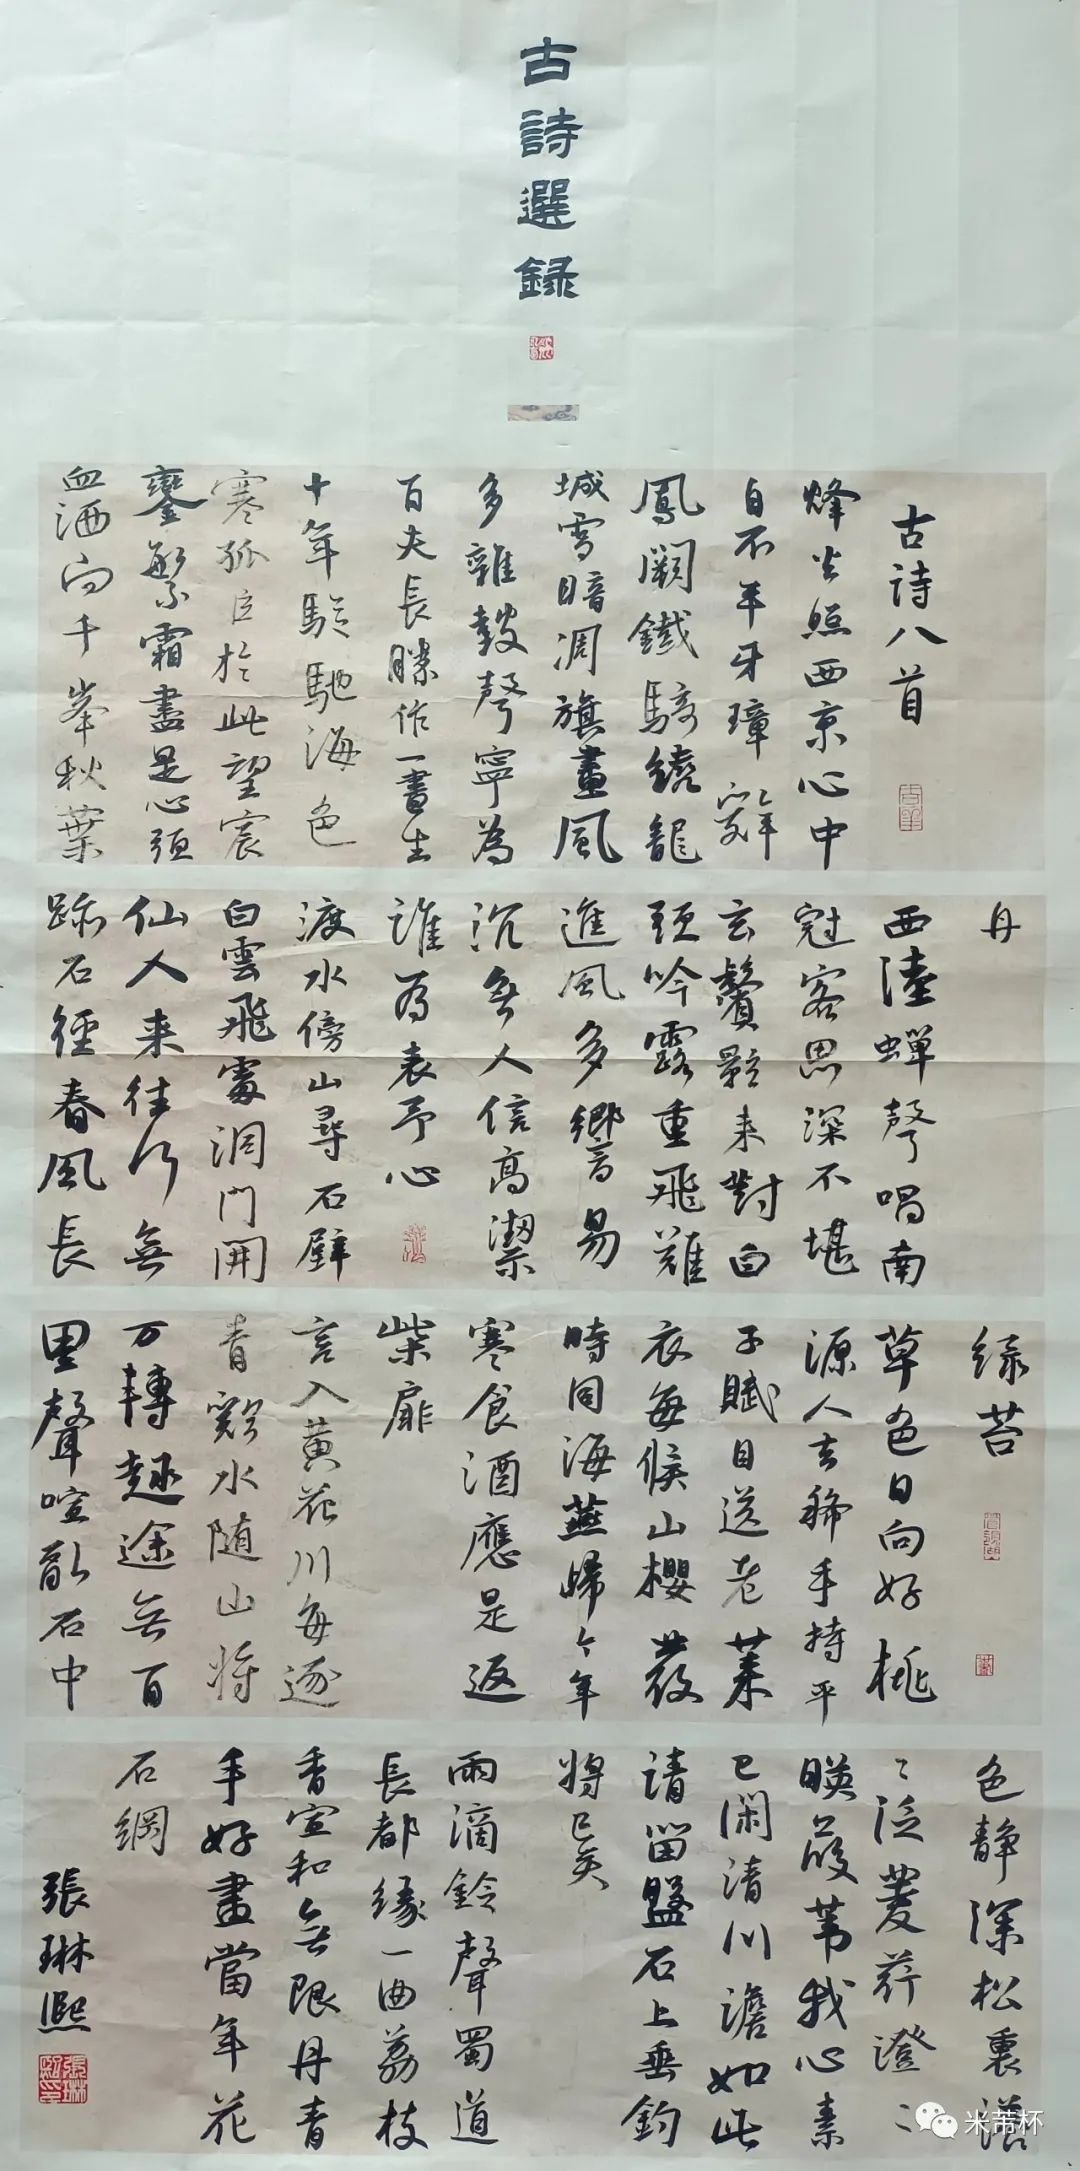 古詩選録
古詩八首
烽火照西京心中
自不平牙璋辭
鳳闕鐵騎繞龍
城雪暗凋旗畫風
多雜鼓聲寧為
百夫長勝作一書生
十年驅馳海色
寒孤臣於此望宸
鑾繁霜盡是心頭
血洒向千峯秋葉
丹
西陸蟬聲唱南
冠客思深不堪
玄鬢影来對白
頭吟露重飛難
進風多響易
沉無人信高潔
誰為表予心
渡水傍山尋石壁
白雲飛處洞門開
仙人来往行無
跡石徑春風長
緑苔
草色日向好桃
源人去稀手持平
子賦目送老萊
衣每候山櫻發
時同海燕歸今年
寒食酒應是返
柴扉
言入黄花川每逐
青谿水随山將
万轉趣途無百
里聲喧亂石中
色静深松裏漾
漾泛菱荇澄澄
暎葭葦我心素
已閑清川澹如此
請留盤石上垂釣
將已矣
雨滴鈴聲蜀道
長都緣一曲荔枝
香宣和無限丹青
手好畫當年花
石綱
張琳熙
米芾杯